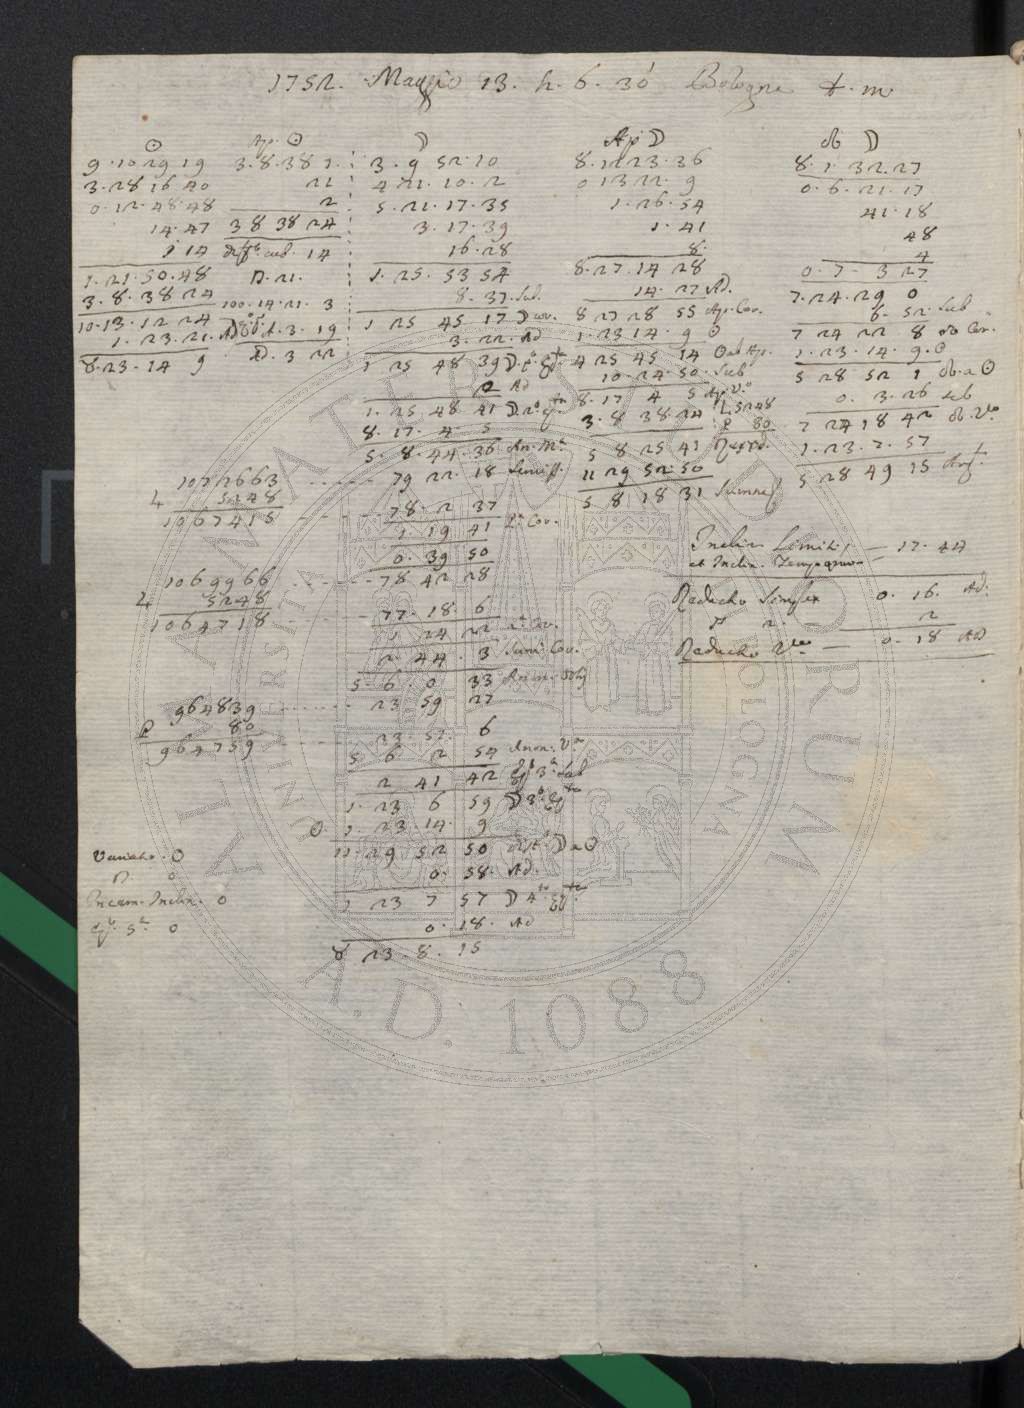 1752. Maggio 13. h. 6. 30' Bologna t. m.
☉
9 · 10 29 19
3 · 28 16 40
0 · 12 · 48 · 48
14 · 47
1 14
1 · 21 · 50 · 48
3 · 8 · 38 24
10 · 13 · 12 24
1 · 23 · 21 · Ad
8 · 23 · 14 9
Ap. ☉
3 · 8 · 38 1 ·
21
2
3 8 38 24
14
D. 21.
100 · 14 · 21 · 3
3 · 19
Ad. 3 22
☽
3 · 9 52 · 10
4 21 · 10 · 2
5 · 21 · 17 · 35
3 · 17 · 39
16 · 28
1 · 25 · 53 54
8 · 37 · Sub.
1 25 45 17 ☽ cor.
3 · 22 · Ad
1 25 48 39 ☽
2 Ad
1 · 25 48 41 ☽
8 · 17 · 4 · 5
5 · 8 · 44 · 36 An. M.
79 22 · 18 Semiss.
78 · 2 37
1 · 19 41 1.ª Cor.
0 · 39 50
78 42 28
77 · 18 · 6
1 24 22 2.ª Cor.
2 · 44 · 3 Sum. Cor.
5 · 6 · 0 33
23 59 27
23 · 57 · 6
5 6 2 54 Anom. V.ª
2 41 42 Eq. 3.ª Sub
1 · 23 6 59 ☽ 3.º
☉ 1 · 23 · 14 · 9
11 · 29 52 50 dist. ☽ a ☉
0 · 58 · Ad.
1 23 7 57 ☽ 4.º
0 · 18 · Ad
8 23 · 8 · 15
1072663
L 5248
1067415
1069966
L 5248
1064718
964839
P 80
964759
Ap ☽
8 · 12 23 · 36
0 13 22 · 9
1 · 26 · 54
1 · 41
8 ·
8 · 27 · 14 28
14 · 27 Ad.
8 27 28 55 Ap. Cor.
1 · 23 14 · 9 ☉
4 25 45 14 ☉ ab Ap.
10 · 24 · 50 · Sub
8 · 17 4 5 Ap. V.º
3 · 8 38 24 L 5248
P 80
5 8 25 41
11 29 52 · 50
5 8 18 31
☊ ☽
8 · 1 · 32 · 27
0 · 6 · 21 · 17
41 · 18
48
4
0 · 7 · 3 27
7 · 24 · 29 0
6 · 52 · Sub
7 24 22 8 ☊ Cor.
1 · 23 · 14 · 9 · ☉
5 28 52 1 ☊ a ☉
0 · 3 · 26 Sub
7 24 18 42 ☊ V.º
1 · 23 · 7 · 57
5 · 28 49 15 Arg.
Inclin. Limitis — 17 · 44
et Inclin.
Reductio Simplex 0 · 16 · Ad.
2
Reductio — 0 · 18 AD
Variatio · 0
0
Increm. Inclin. 0
Eq. 5.ª 0
ALMA MATER STUDIORUM
UNIVERSITÀ DI BOLOGNA
A.D. 1088